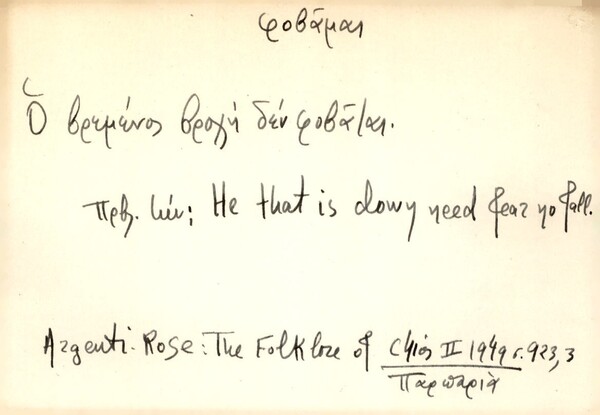 φοβᾶμαι
Ὁ βρεμένος βροχή δέν φοβᾶται.
Πρβ. : He that is down need fear no fall.
Argenti-Rose: The Folklore of Chios II 1949 σ. 923, 3
Παρπαριὰ